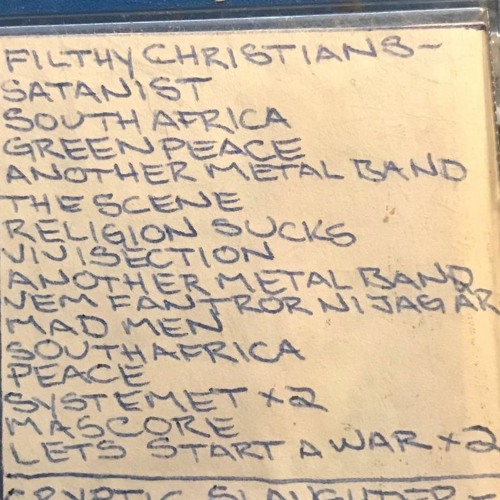 FILTHY CHRISTIANS-
SATANIST
SOUTH AFRICA
GREENPEACE
ANOTHER METAL BAND
THE SCENE
RELIGION SUCKS
VIVISECTION
ANOTHER METAL BAND
VEM FAN TROR NI JAG ÄR
MAD MEN
SOUTH AFRICA
PEACE
SYSTEMET x2
MASCORE
LETS START A WAR x2
CRYPTIC SLAUGHTER-